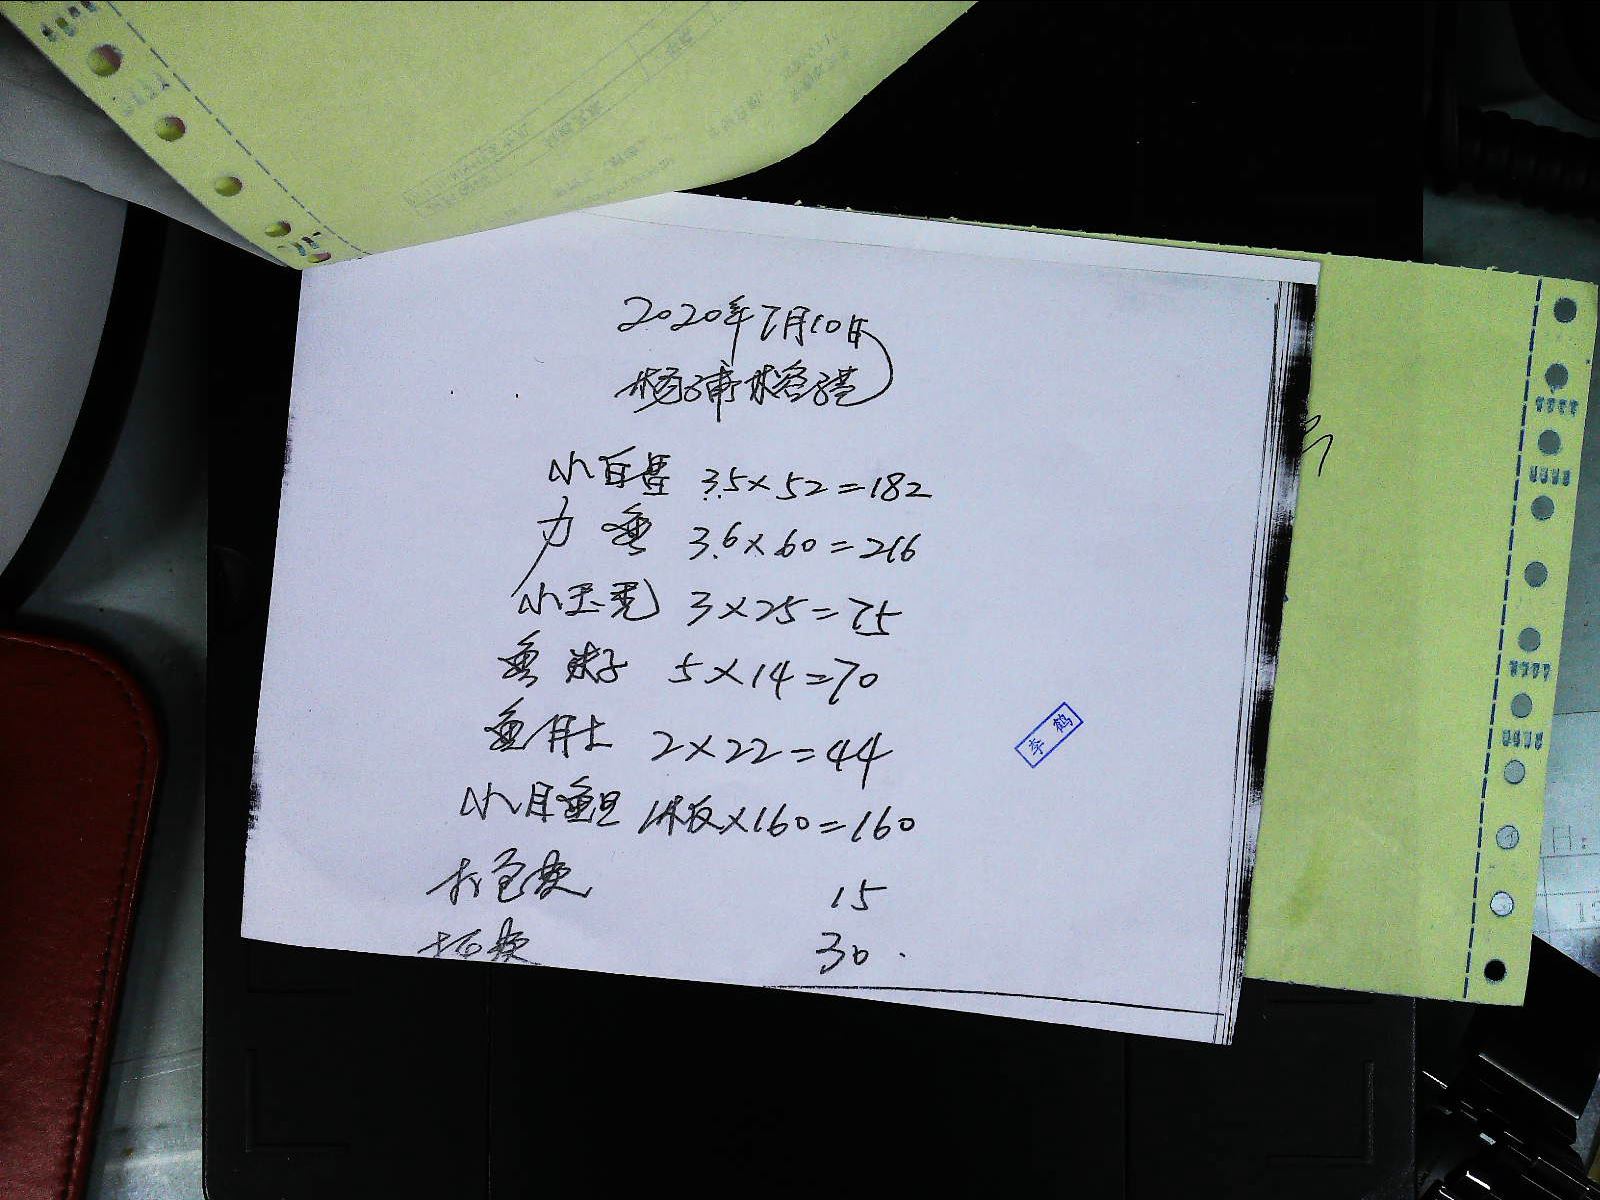 2020年7月10日
杨浦榕港
小白 3.5×52=182
力鱼 3.6×60=216
小玉秃 3×25=75
鱼 5×14=70
鱼肚 2×22=44
小目鱼蛋 1板×160=160
打包费 15
费 30
李鹤